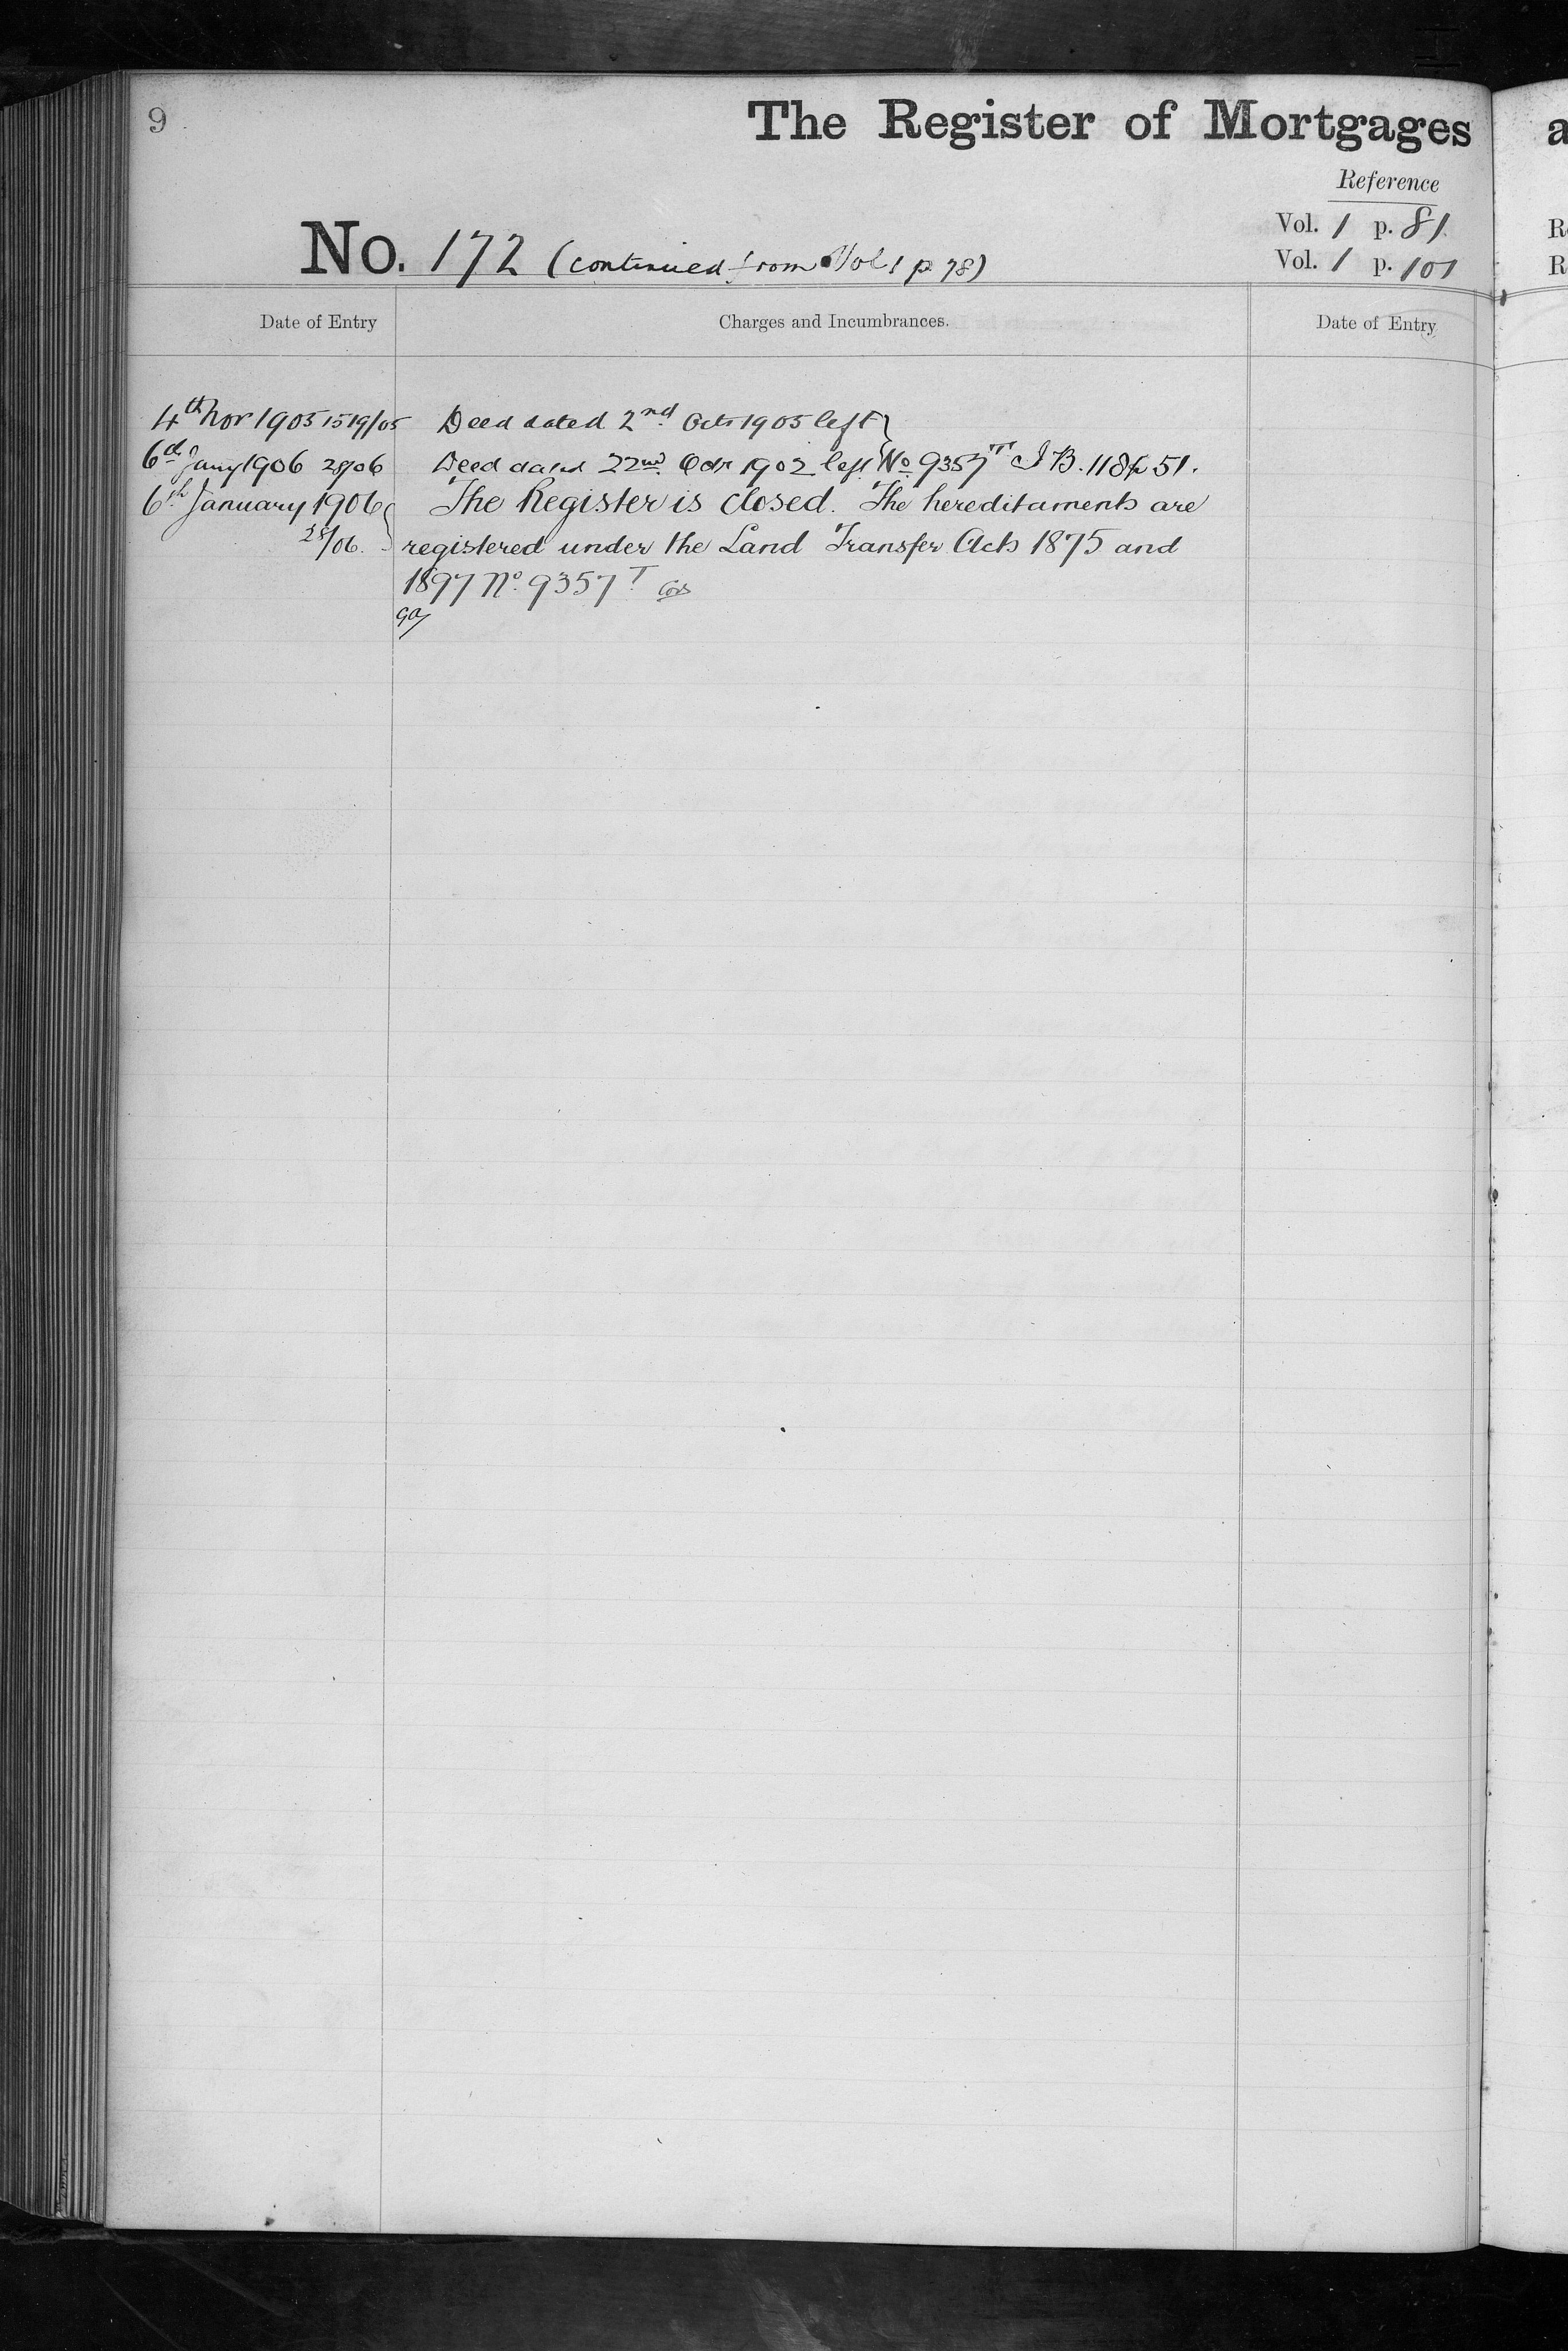 9
The Register of Mortgages
Reference
Vol. 1 p. 81
Vol. 1 p. 101
No. 172 (continued from Vol 1 p 78)
Date of Entry
Charges and Incumbrances.
Date of Entry
4th Nov 1905 1519/05 Deed dated 2nd Octr 1905 left
6th Jany 1906 28/06 Deed dated 22nd Octr 1902 left No 9357T I B. 118 p 51.
6th January 1906 The Register is closed. The hereditaments are
28/06. registered under the Land Transfer Acts 1875 and
1897 No. 9357T